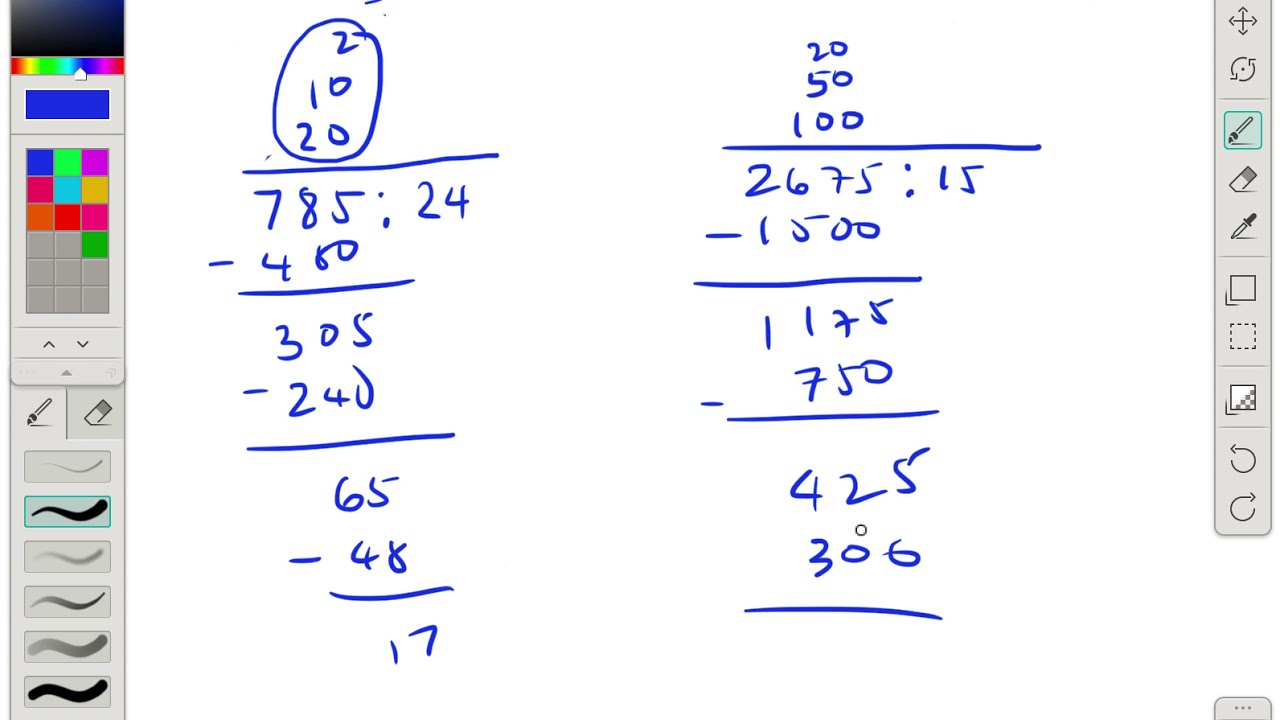 2
10
20
785 : 24
- 480
305
- 240
65
- 48
17
20
50
100
2675 : 15
- 1500
1175
- 750
425
300